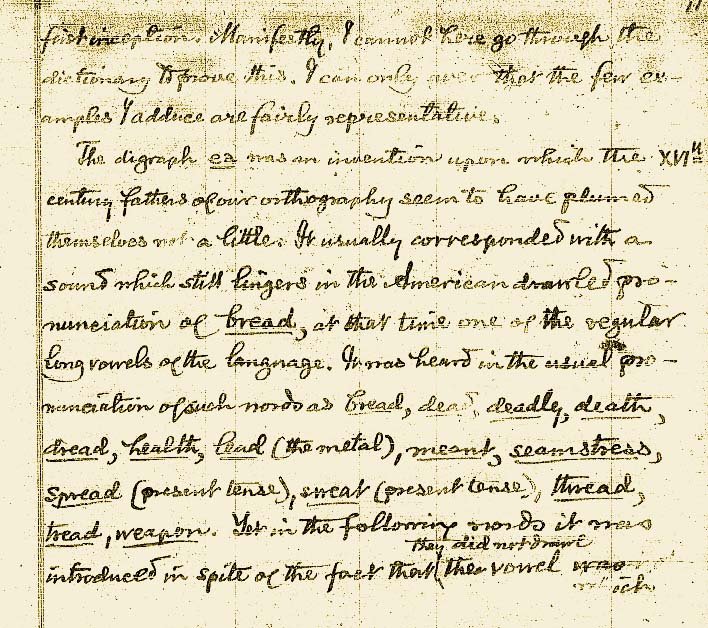 first inception. Manifestly, I cannot here go through the
dictionary to prove this. I can only aver that the few ex-
amples I adduce are fairly representative.
The digraph ea was an invention upon which the XVIth
century fathers of our orthography seem to have plumed
themselves not a little. It usually corresponded with a
sound which still lingers in the American drawled pro-
nunciation of bread, at that time one of the regular
long vowels of the language. It was heard in the usual pro-
nunciation of such words as bread, dead, deadly, death,
dread, health, lead (the metal), meant, seamstress,
spread (present tense), sweat (present tense), thread,
tread, weapon. Yet in the following words it was
they did not drawl
introduced in spite of the fact that the vowel was